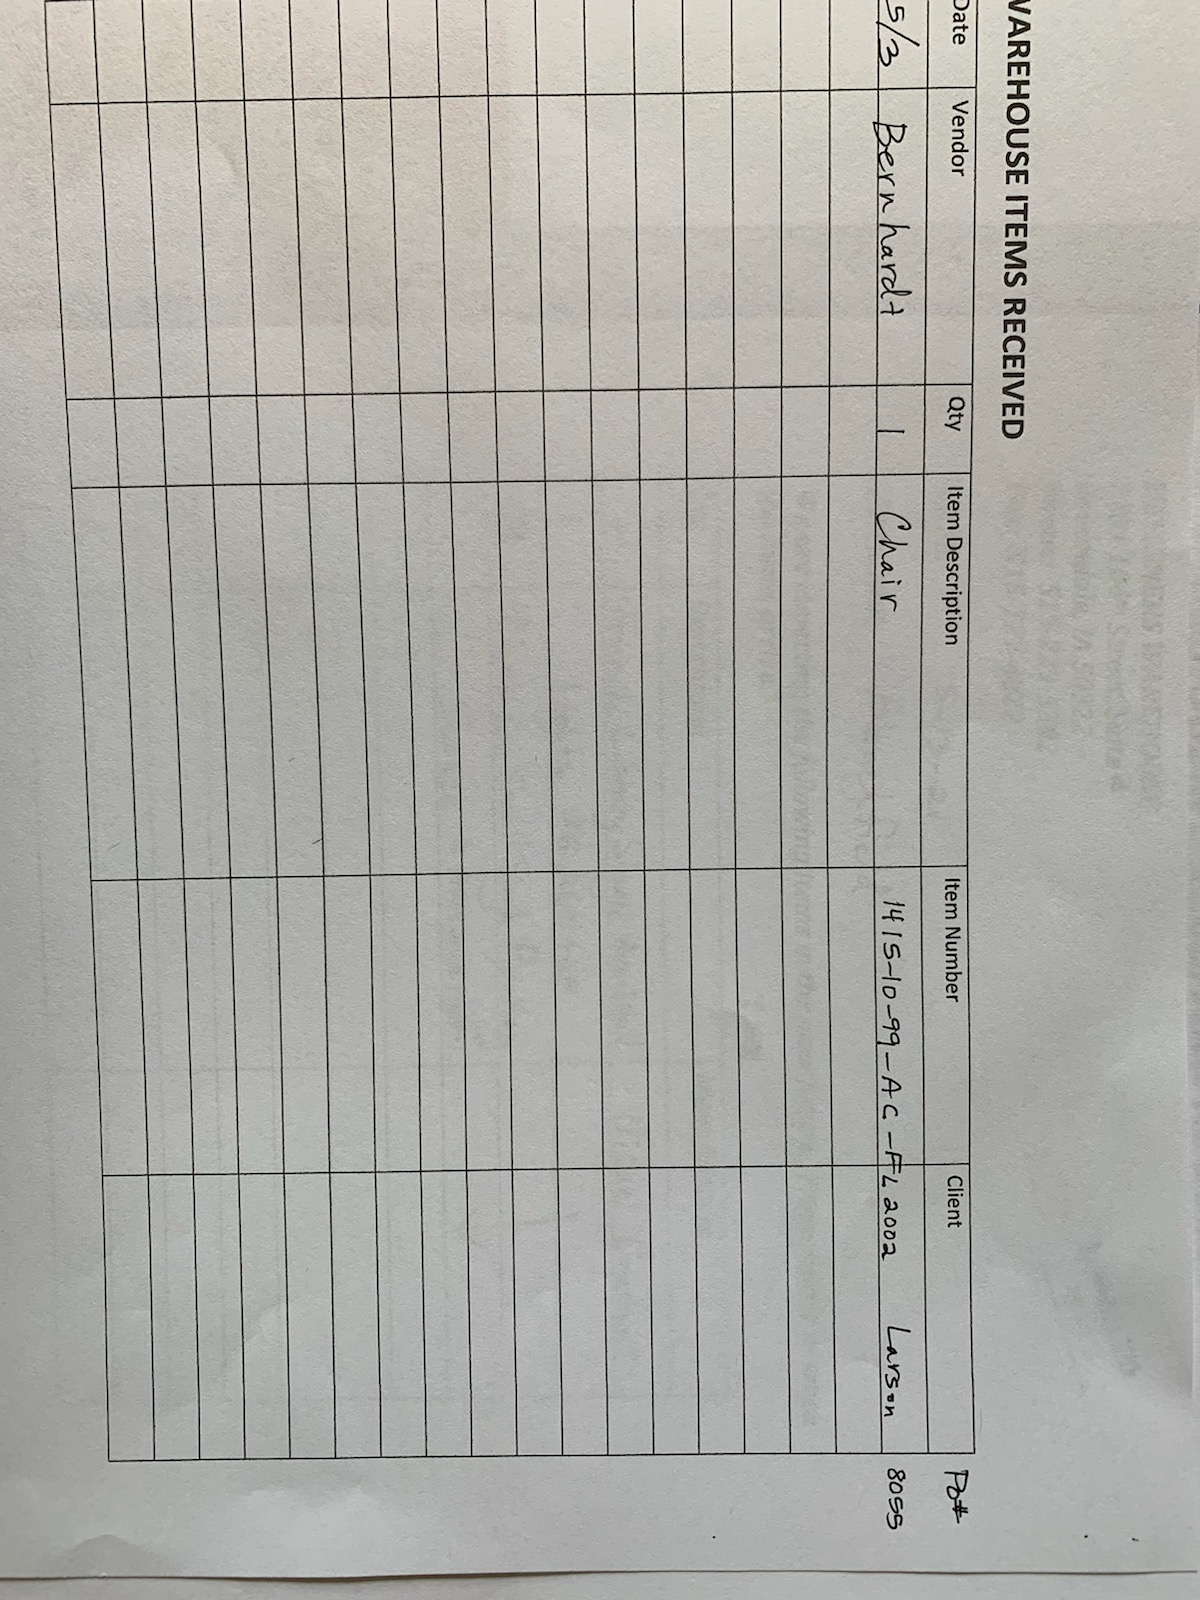 WAREHOUSE ITEMS RECEIVED
Date Vendor Qty Item Description Item Number Client Po#
5/3 Bernhardt 1 Chair 1415-10-99-AC-FL2002 Larson 8055